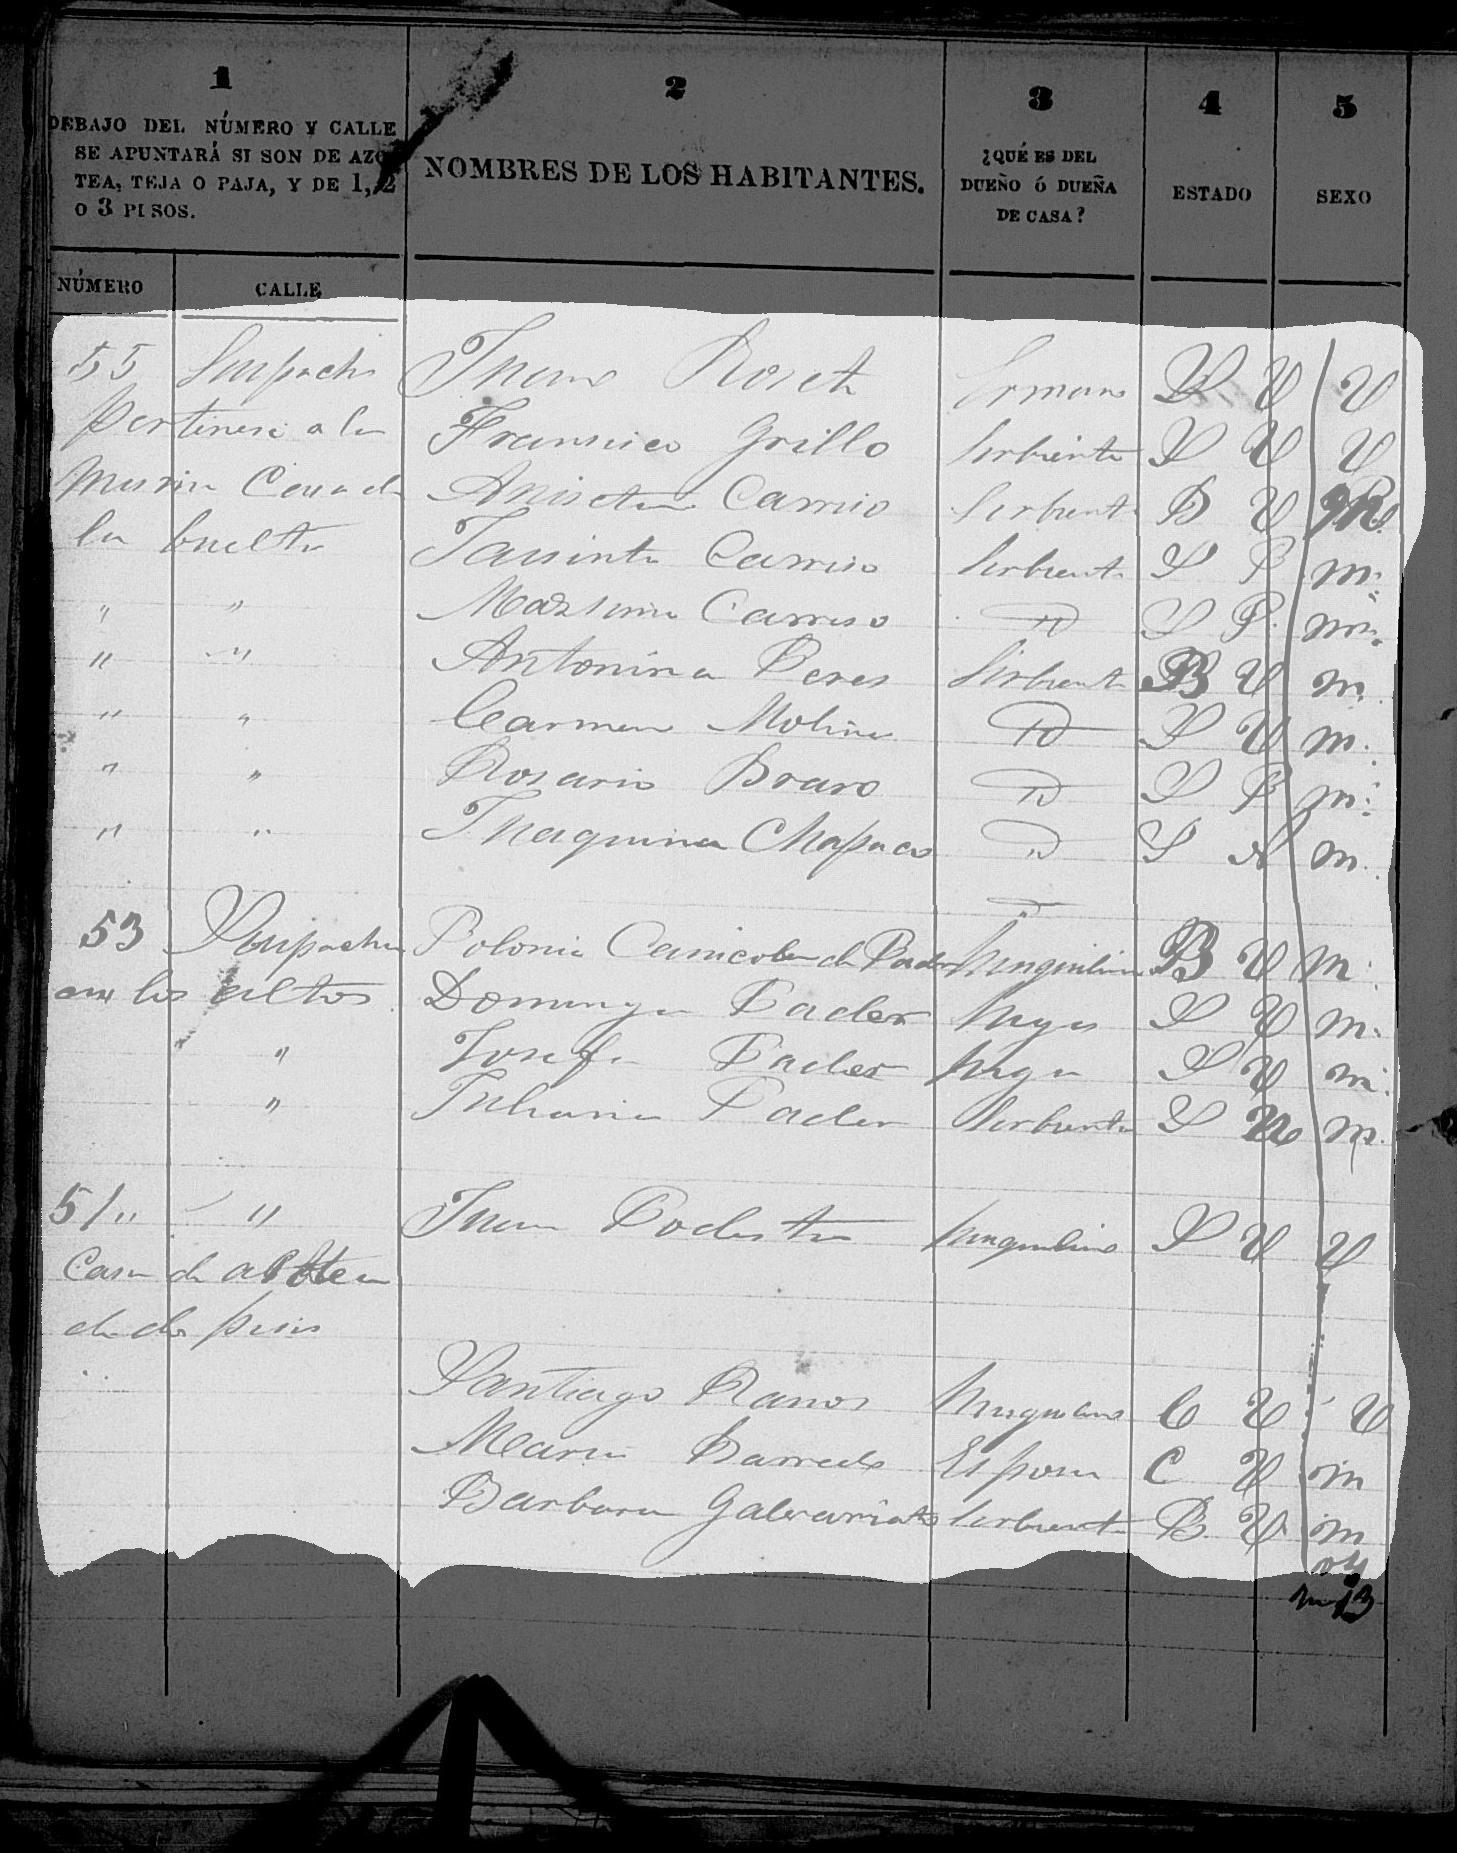 1
2
3
4
5
DEBAJO DEL NÚMERO Y CALLE
SE APUNTARÁ SI SON DE AZO
TEA, TEJA O PAJA, Y DE 1, 2
O 3 PISOS.
NOMBRES DE LOS HABITANTES.
¿QUÉ ES DEL
DUEÑO Ó DUEÑA
DE CASA?
ESTADO
SEXO
NÚMERO CALLE
55 Suipacha Juan Roseti Ermano S V V
Pertinese a la Fransisco Grillo Serbiente S V V
misma Casa de Aniseta Carriso Serbiente B V
la buelta Jassinta Carriso Serbiente S P m.
" " Carriso ID S P. m.
" " Antonina Peres Serbiente B V m.
" " Carmen Molina ID S V m.
" " Rosario Bravo ID S P m.
" " Juaquina Chapaco ID S m.
53 Suipacha Polonia de Inquilina B V m.
en los altos Dominga Pader S V m.
" Josefa Pader S V m.
" Juliana Pader Serbiente S m.
51 " " Juan Podesta Inquilino S V V
Casa de asotea
de dos pisos
Santiago Ramos Inquilino C V V
Maria Barreda Esposa C V m
Barbara Serbiente B. V m
m 13